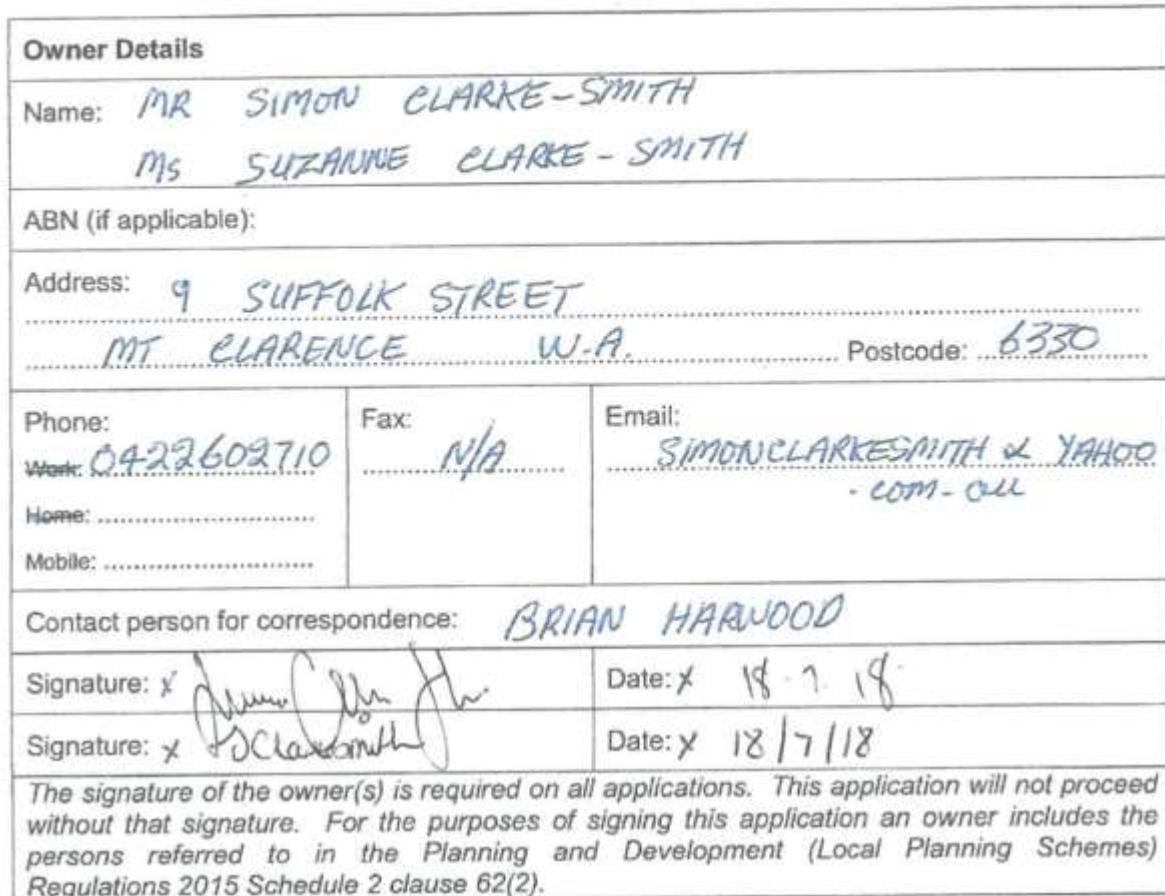 Owner Details
Name: MR SIMON CLARKE-SMITH
MS SUZANNE CLARKE-SMITH
ABN (if applicable):
Address: 9 SUFFOLK STREET
MT CLARENCE W.A. Postcode: 6330
Phone:
Work: 0422602710
Home:
Mobile:
Fax:
N/A
Email:
SIMONCLARKESMITH @ YAHOO
.com.au
Contact person for correspondence: BRIAN HARWOOD
Signature: x
Date: x 18.7.18
Signature: x
Date: x 18/7/18
The signature of the owner(s) is required on all applications. This application will not proceed
without that signature. For the purposes of signing this application an owner includes the
persons referred to in the Planning and Development (Local Planning Schemes)
Regulations 2015 Schedule 2 clause 62(2).